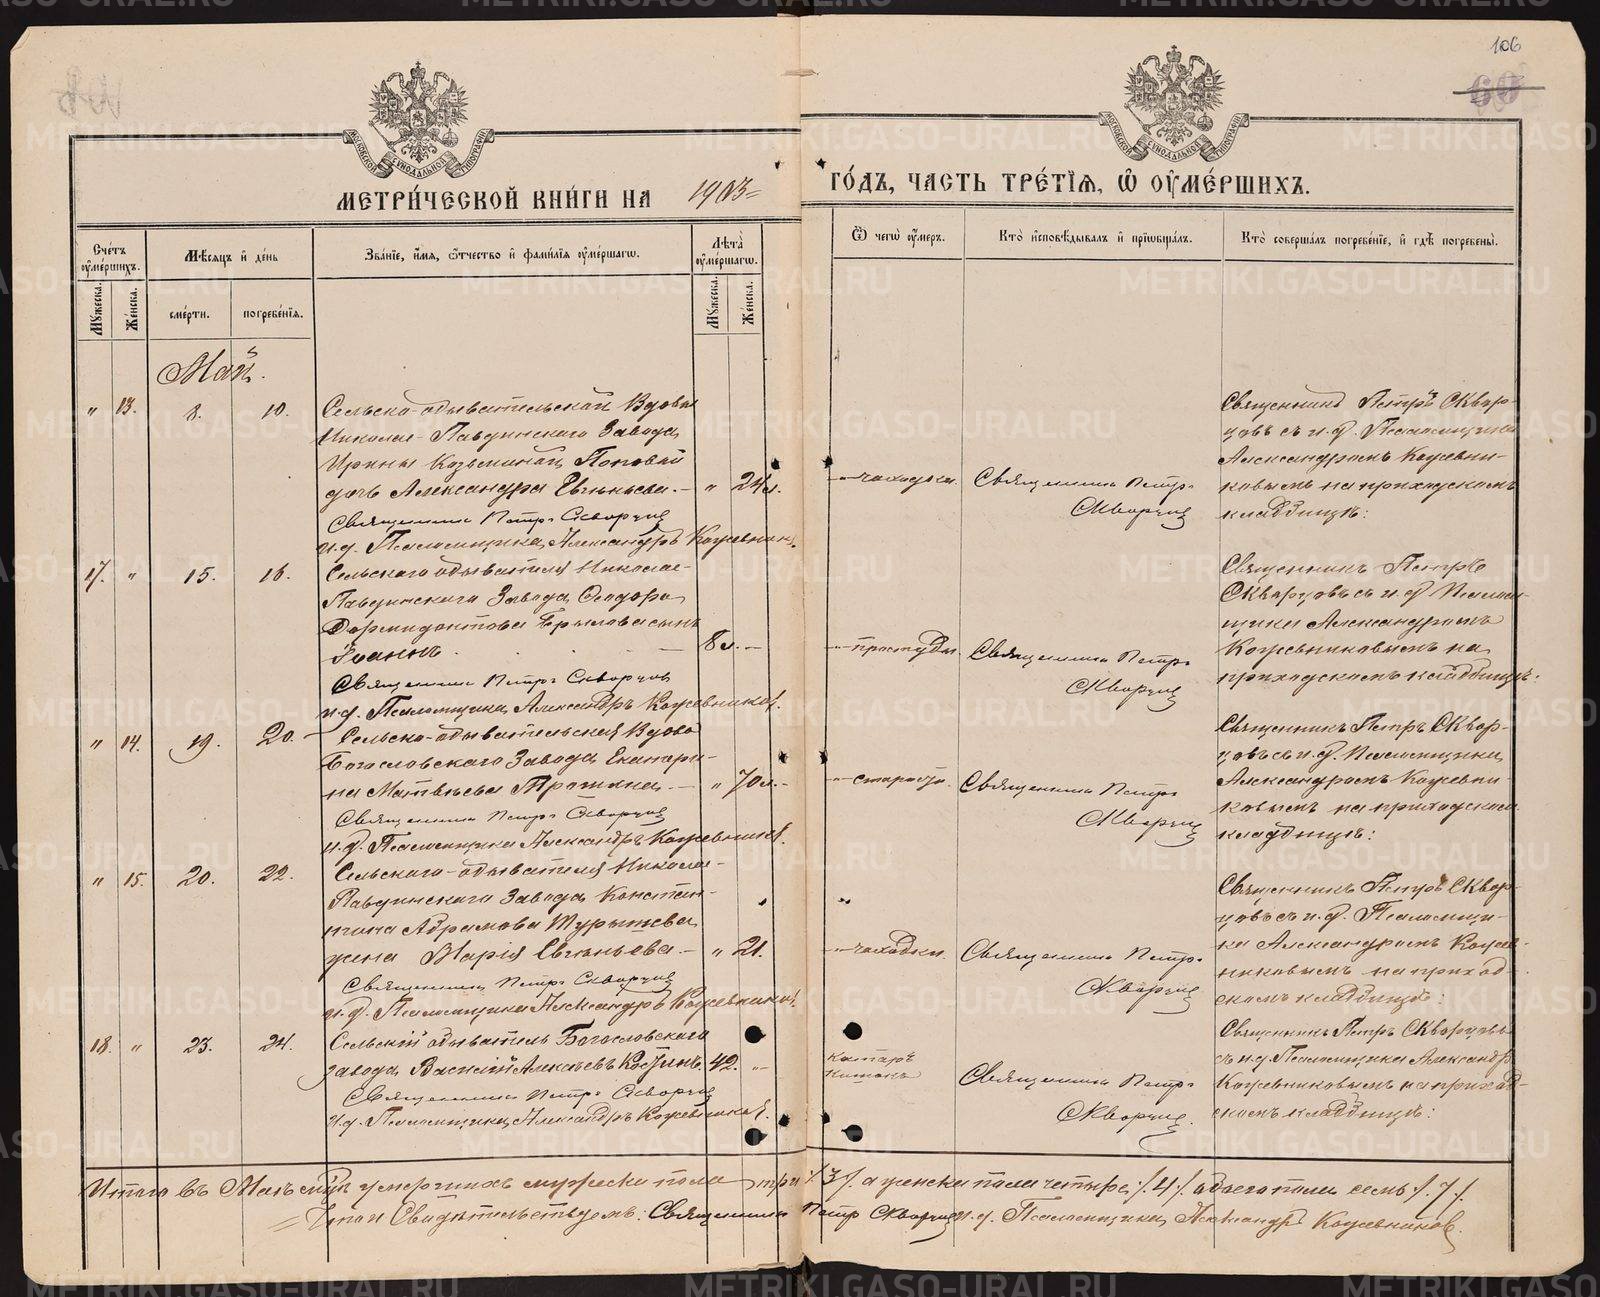 106
60
МОСКОВСКОЙ СѴНОДАЛЬНОЙ ТИПОГРАФІИ
МОСКОВСКОЙ СѴНОДАЛЬНОЙ ТИПОГРАФІИ
МЕТРИ́ЧЕСКОЙ КНИ́ГИ НА 1903=
ГО́ДЪ, ЧАСТЬ ТРЕ́ТЇѦ, Ѿ ОУМЕ́РШИХЪ.
Сче́тъ оумершихъ.
Мѣ́сѧцъ и де́нь
Зва́нїе, и́мѧ, ѻ҆́тчество и фами́лїѧ оуме́ршагѡ.
Лѣта̀ оуме́ршагѡ.
Ѿ чегѡ̀ оу́меръ.
Кто̀ и҆сповѣ́дывалъ и прїѡбща́лъ.
Кто̀ соверша́лъ погребе́нїе, и гдѣ̀ погребены̀.
Му́жеска.
Же́нска.
сме́рти.
погребе́нїѧ.
Му́жеска.
Же́нска.
Май.
" 13. 8. 10.
Сельско-обывательской вдовы
Николае-Павдинскаго Завода,
Ирины Козьминой Поповой
дочь Александра Евгеньева. - " 24 л.
Священникъ Петръ Скворцов
и.д. Псаломщика Александръ Кожевников.
чахотки.
Священникъ Петръ
Скворцов
Священникъ Петръ Сквор-
цовъ съ и.д. Псаломщика
Александромъ Кожевни-
ковымъ на приходскомъ
кладбищѣ:
17. " 15. 16.
Сельскаго обывателя Николае-
Павдинскаго Завода Ѳеодора
Дормидонтова Брылова сынъ
Іоаннъ. - 8 л. -
Священникъ Петръ Скворцов
и.д. Псаломщика Александръ Кожевников.
простуды.
Священникъ Петръ
Скворцов
Священникъ Петръ
Скворцовъ съ и.д. Псалом-
щика Александромъ
Кожевниковымъ на
приходскомъ кладбищѣ.
" 14. 19. 20.
Сельско-обывательская вдова
Богословскаго Завода, Екатери-
на Матвѣева - " 70 л. -
Священникъ Петръ Скворцов
и.д. Псаломщика Александръ Кожевников.
старости.
Священникъ Петръ
Скворцов
Священникъ Петръ Сквор-
цовъ съ и.д. Псаломщика
Александромъ Кожевни-
ковымъ на приходском
кладбищѣ:
" 15. 20. 22.
Сельскаго-обывателя Николае-
Павдинскаго Завода Констан-
тина Абрамова
жена Марія Евгеньева. - " 21.
Священникъ Петръ Скворцов
и.д. Псаломщика Александръ Кожевников.
чахотки.
Священникъ Петръ
Скворцов
Священникъ Петръ Сквор-
цовъ съ и.д. Псаломщи-
ка Александромъ Кожев-
никовымъ на приход-
скомъ кладбищѣ:
18. " 23. 24.
Сельскій обыватель Богословскаго
завода, Василій Алексѣевъ 42. "
Священникъ Петръ Скворцов
и.д. Псаломщика Александръ Кожевников.
Катаръ
кишокъ
Священникъ Петръ
Скворцов.
Священникъ Петръ Скворцовъ
съ и.д. Псаломщика Александр
Кожевниковымъ на приход-
скомъ кладбищѣ:
Итого въ Маѣ м-цѣ умершихъ мужеска пола три /.3/. а женска пола четыре /.4/. обоего пола семь /.7/.
Въ томъ Свидѣтельствуемъ: Священникъ Петръ Скворцов и.д. Псаломщика Александръ Кожевников.
METRIKI.GASO-URAL.RU